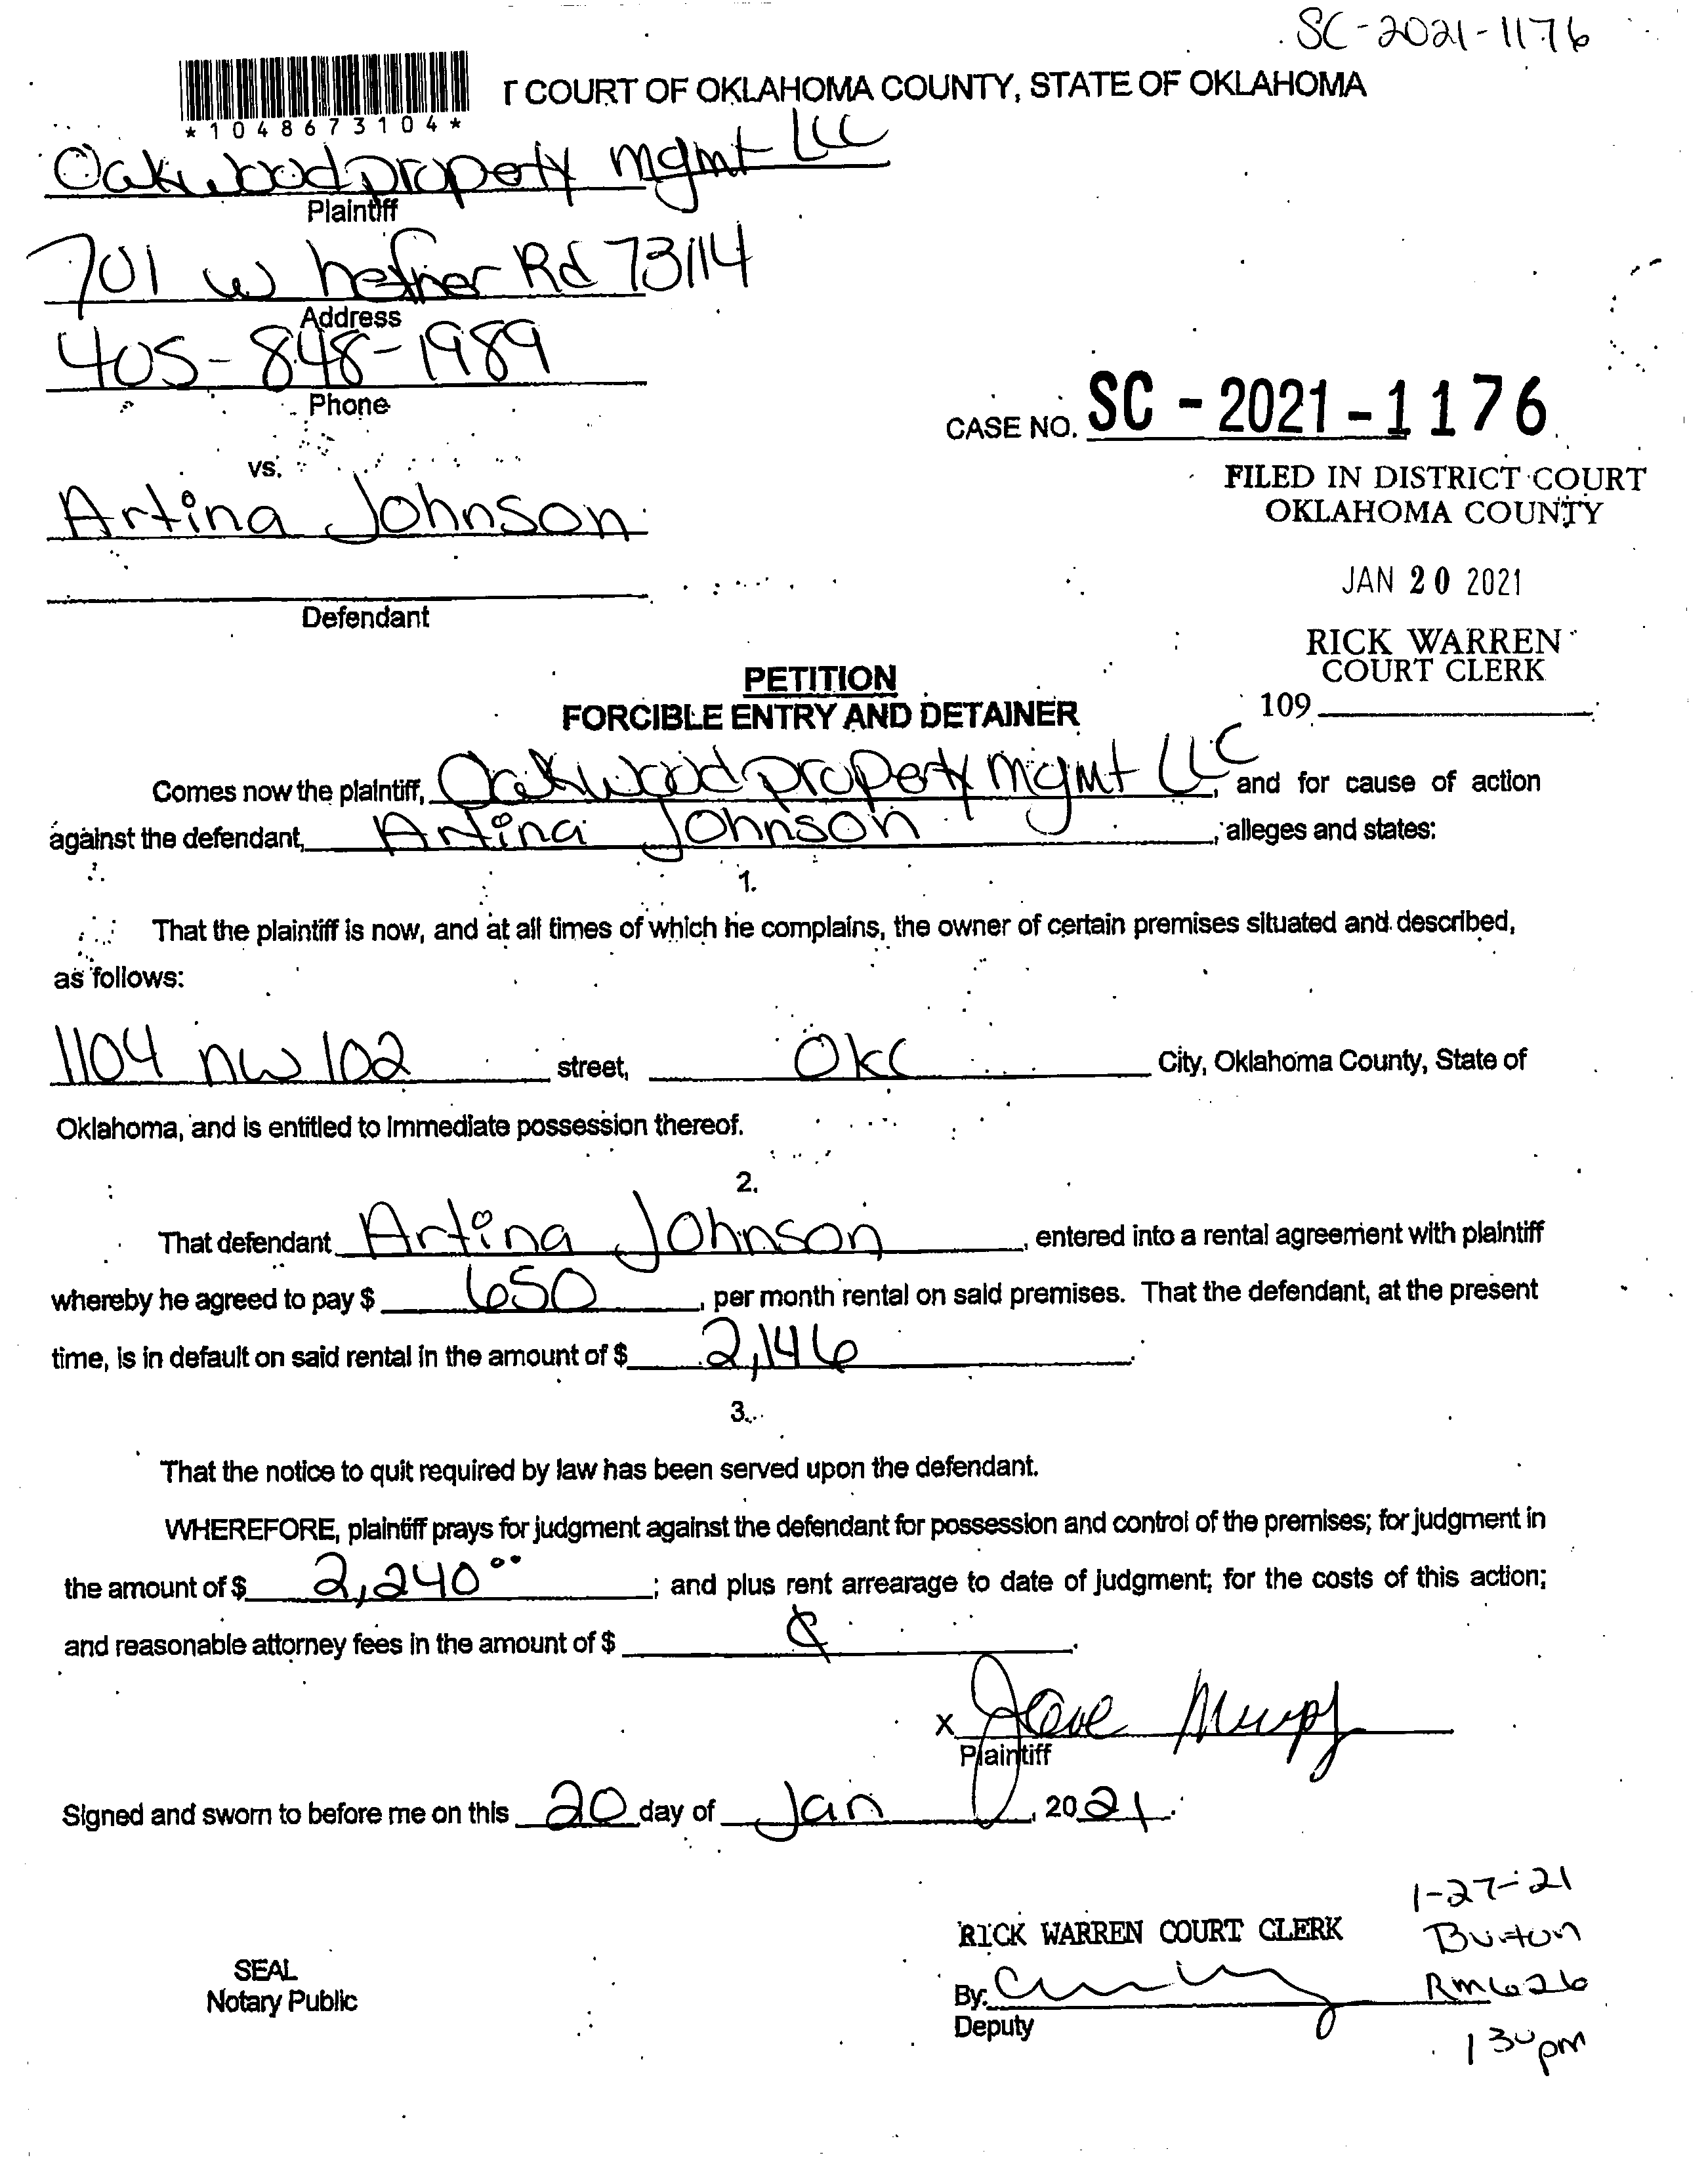 SC-2021-1176
T COURT OF OKLAHOMA COUNTY, STATE OF OKLAHOMA
*1048673104*
Oakwood property mgmt LLC
Plaintiff
701 w hefner Rd 73114
Address
405-848-1989
Phone
CASE NO. SC-2021-1176
vs.
FILED IN DISTRICT COURT
OKLAHOMA COUNTY
Artina Johnson
JAN 20 2021
Defendant
RICK WARREN
COURT CLERK
109
PETITION
FORCIBLE ENTRY AND DETAINER
Comes now the plaintiff, Oakwood property mgmt LLC, and for cause of action
against the defendant, Artina Johnson, alleges and states:
1.
That the plaintiff is now, and at all times of which he complains, the owner of certain premises situated and described,
as follows:
1104 nw 102 street, OKC City, Oklahoma County, State of
Oklahoma, and is entitled to immediate possession thereof.
2.
That defendant Artina Johnson, entered into a rental agreement with plaintiff
whereby he agreed to pay $ 650, per month rental on said premises. That the defendant, at the present
time, is in default on said rental in the amount of $ 2,146.
3.
That the notice to quit required by law has been served upon the defendant.
WHEREFORE, plaintiff prays for judgment against the defendant for possession and control of the premises; for judgment in
the amount of $ 2,240°°; and plus rent arrearage to date of judgment; for the costs of this action;
and reasonable attorney fees in the amount of $
X
Plaintiff
Signed and sworn to before me on this 20 day of Jan, 2021.
1-27-21
RICK WARREN COURT CLERK
Burton
SEAL
Notary Public
By:
Rm 626
Deputy
130 pm